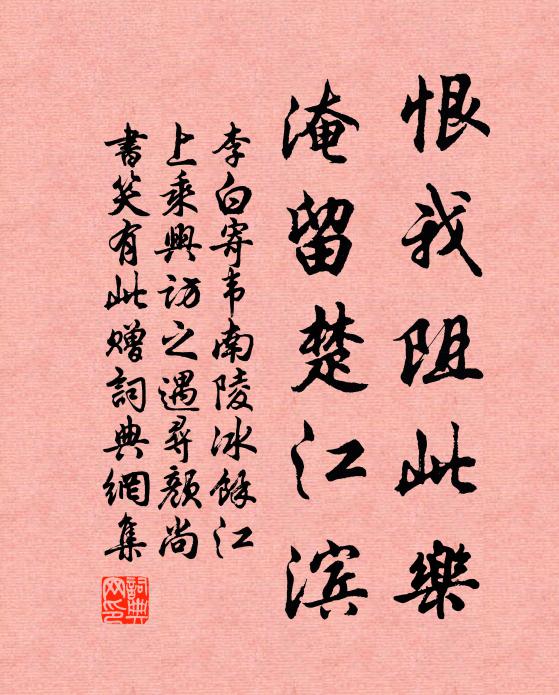 恨我阻此樂
淹留楚江滨
李白寄韦南陵冰餘江
上乘興訪之遇尋顏尚
書笑有此贈詞典網集
詞典網印